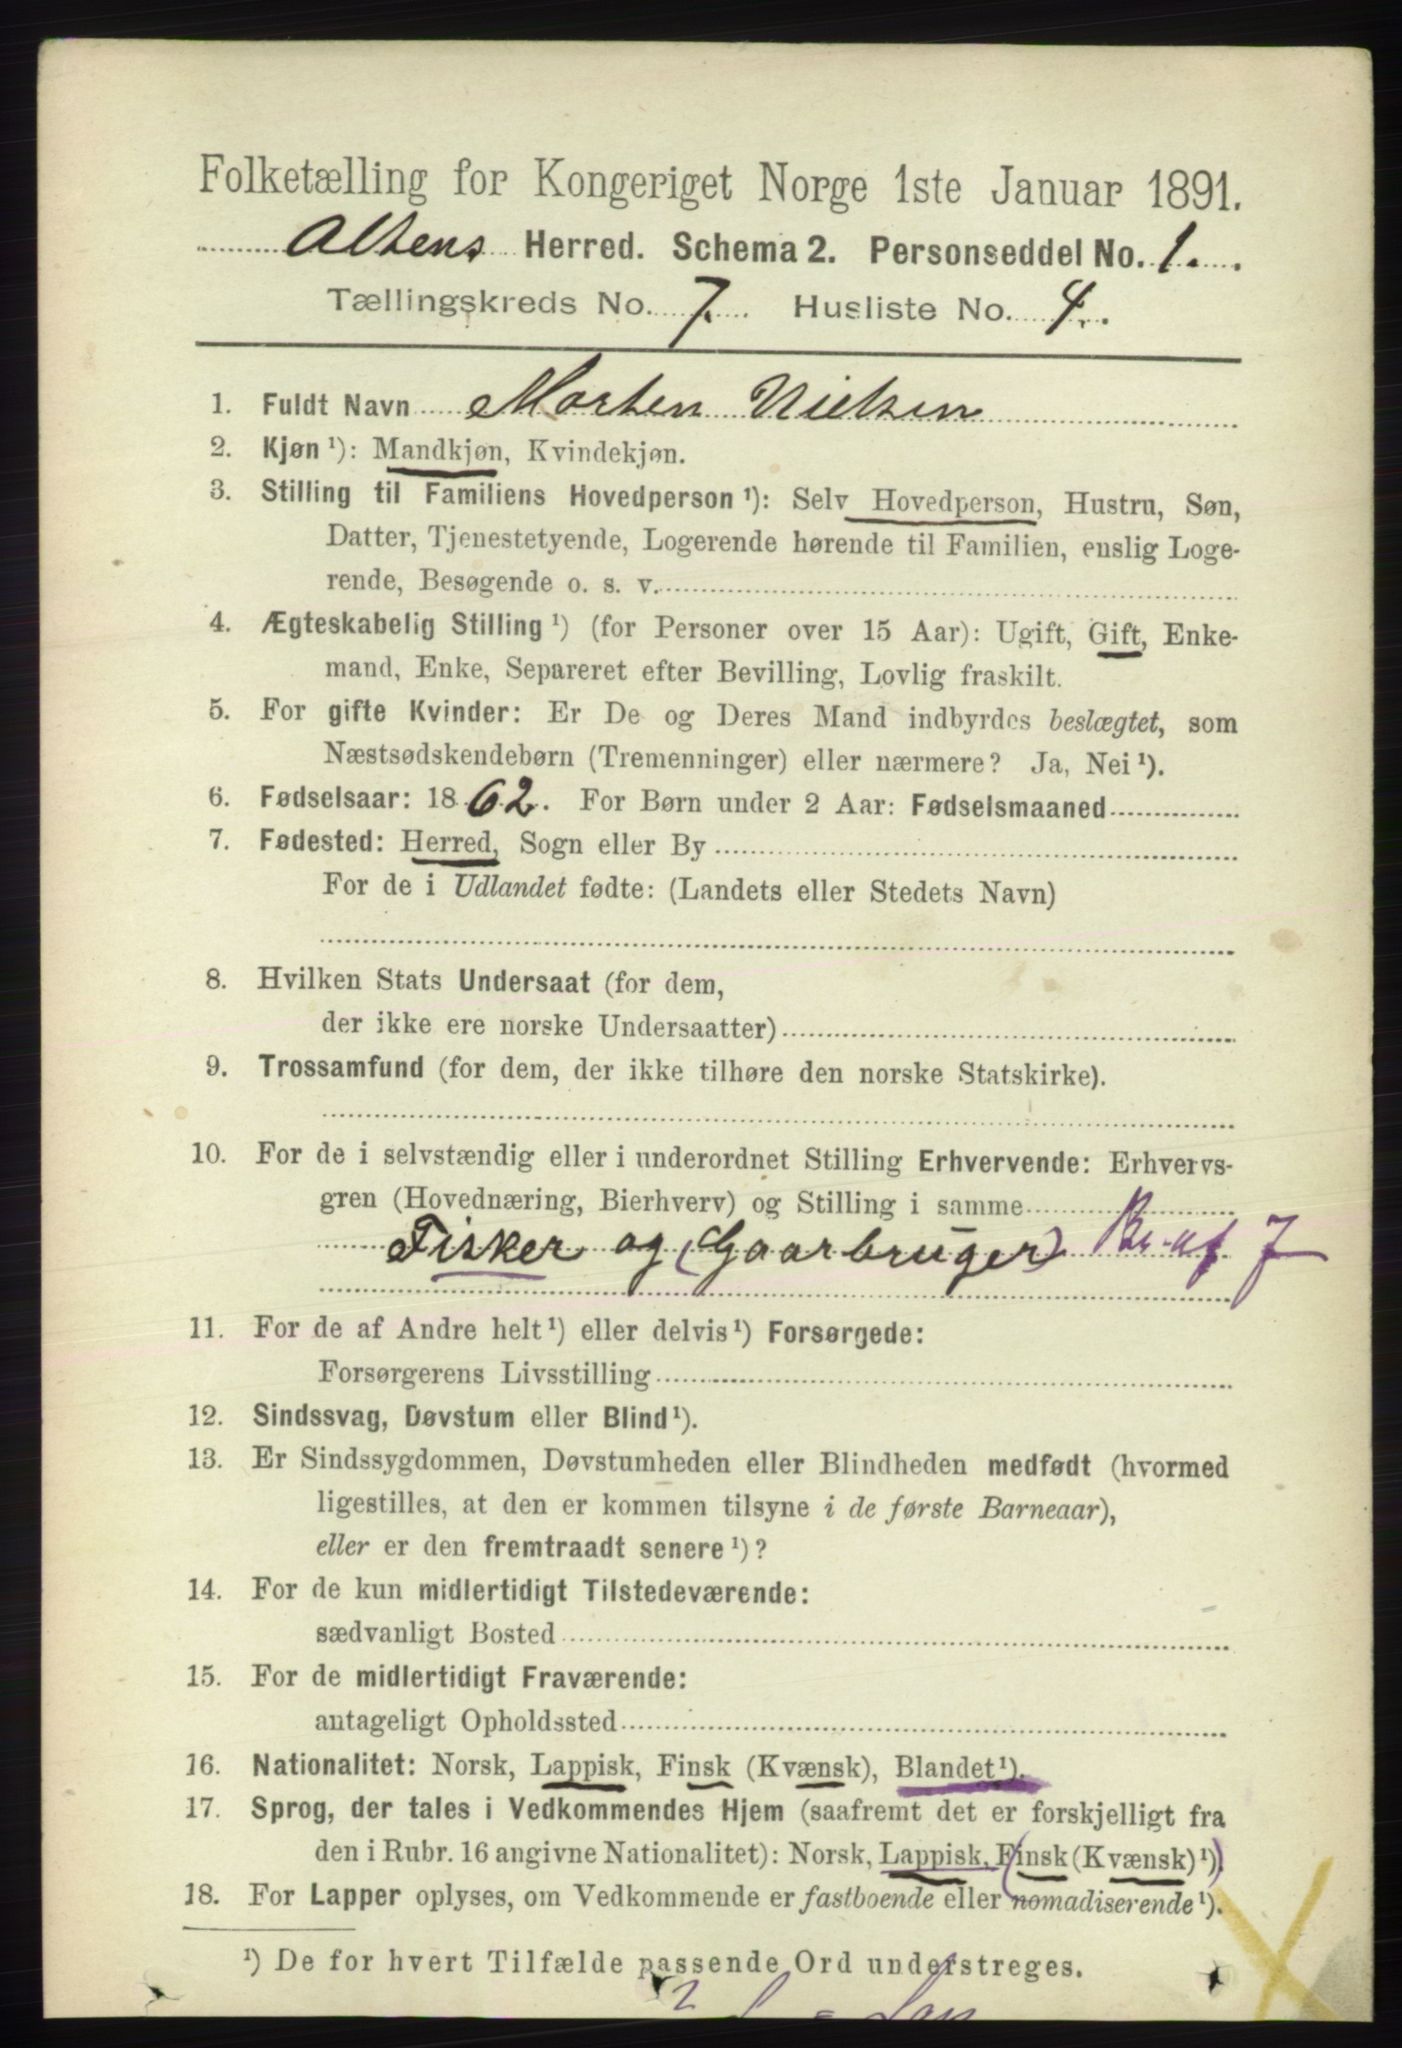 Folketælling for Kongeriget Norge 1ste Januar 1891.
Altens Herred. Schema 2. Personseddel No. 1.
Tællingskreds No. 7. Husliste No. 4.
1. Fuldt Navn Morten Nielsen
2. Kjøn ¹): Mandkjøn, Kvindekjøn.
3. Stilling til Familiens Hovedperson ¹): Selv Hovedperson, Hustru, Søn,
Datter, Tjenestetyende, Logerende hørende til Familien, enslig Loge-
rende, Besøgende o. s. v.
4. Ægteskabelig Stilling ¹) (for Personer over 15 Aar): Ugift, Gift, Enke-
mand, Enke, Separeret efter Bevilling, Lovlig fraskilt.
5. For gifte Kvinder: Er De og Deres Mand indbyrdes beslægtet, som
Næstsødskendebørn (Tremenninger) eller nærmere? Ja, Nei ¹).
6. Fødselsaar: 1862. For Børn under 2 Aar: Fødselsmaaned
7. Fødested: Herred, Sogn eller By
For de i Udlandet fødte: (Landets eller Stedets Navn)
8. Hvilken Stats Undersaat (for dem,
der ikke ere norske Undersaatter)
9. Trossamfund (for dem, der ikke tilhøre den norske Statskirke).
10. For de i selvstændig eller i underordnet Stilling Erhvervende: Erhvervs-
gren (Hovednæring, Bierhverv) og Stilling i samme
Fisker og (Gaarbruger) Br. af J
11. For de af Andre helt ¹) eller delvis ¹) Forsørgede:
Forsørgerens Livsstilling
12. Sindssvag, Døvstum eller Blind ¹).
13. Er Sindssygdommen, Døvstumheden eller Blindheden medfødt (hvormed
ligestilles, at den er kommen tilsyne i de første Barneaar),
eller er den fremtraadt senere ¹)?
14. For de kun midlertidigt Tilstedeværende:
sædvanligt Bosted
15. For de midlertidigt Fraværende:
antageligt Opholdssted
16. Nationalitet: Norsk, Lappisk, Finsk (Kvænsk), Blandet ¹).
17. Sprog, der tales i Vedkommendes Hjem (saafremt det er forskjelligt fra
den i Rubr. 16 angivne Nationalitet): Norsk, Lappisk, Finsk (Kvænsk) ¹).
18. For Lapper oplyses, om Vedkommende er fastboende eller nomadiserende ¹).
¹) De for hvert Tilfælde passende Ord understreges.